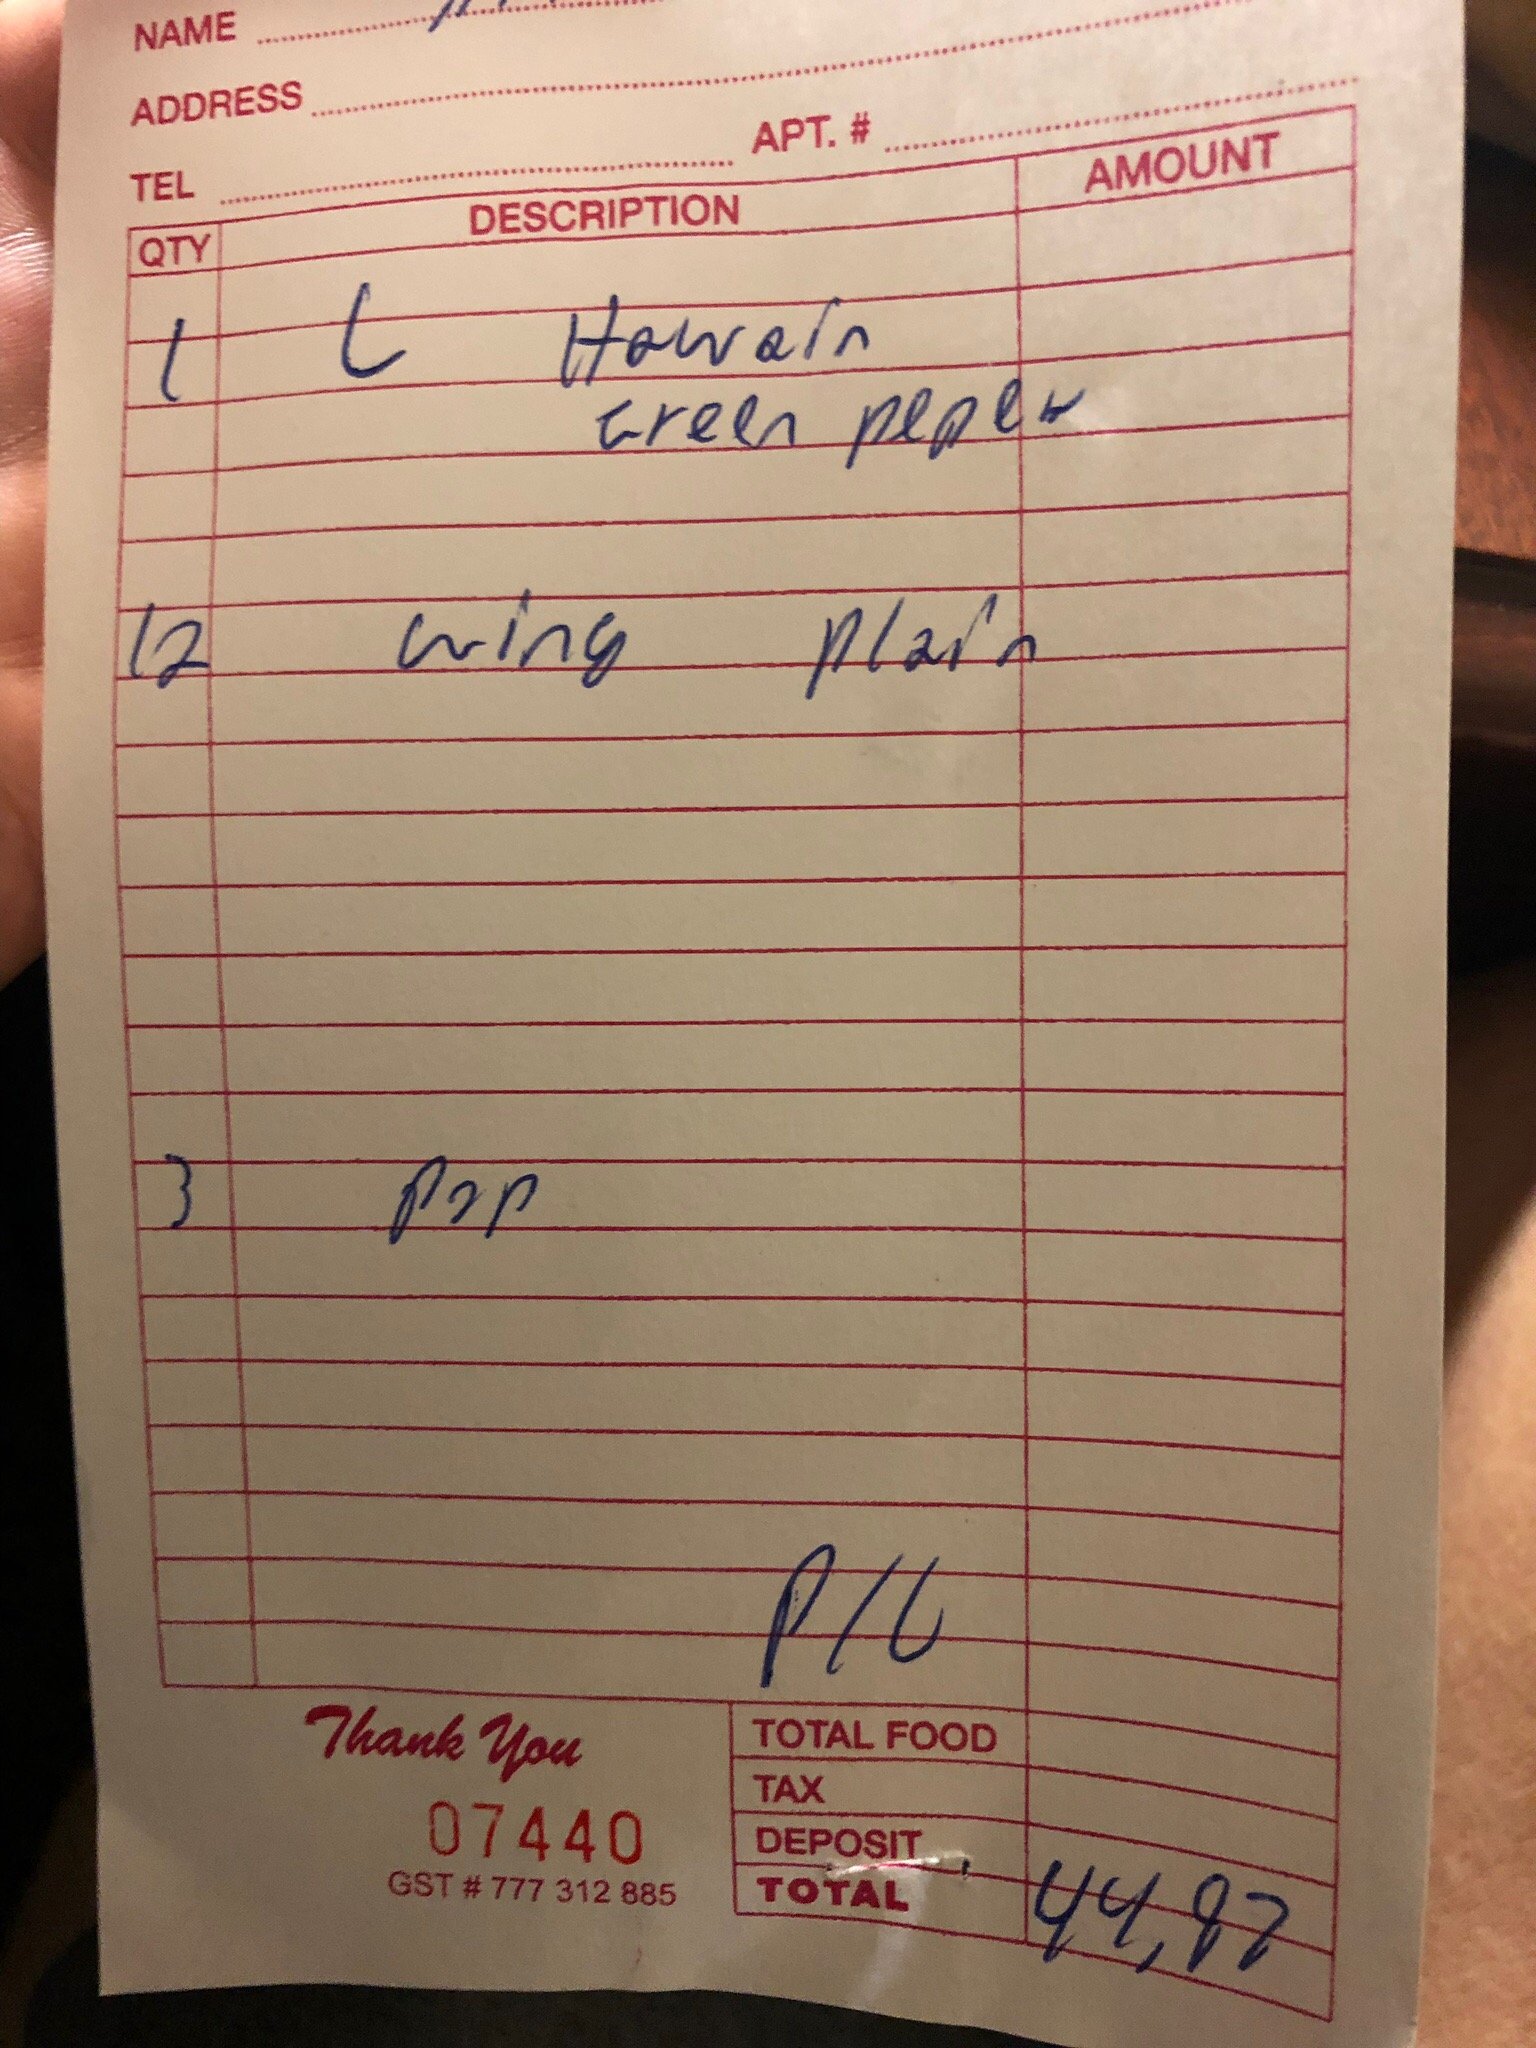 NAME
ADDRESS
TEL APT. #
QTY DESCRIPTION AMOUNT
1 L Hawain
Green peper
12 wing plain
3 pop
P/U
Thank You
TOTAL FOOD
TAX
07440
DEPOSIT
GST # 777 312 885
TOTAL 44,82